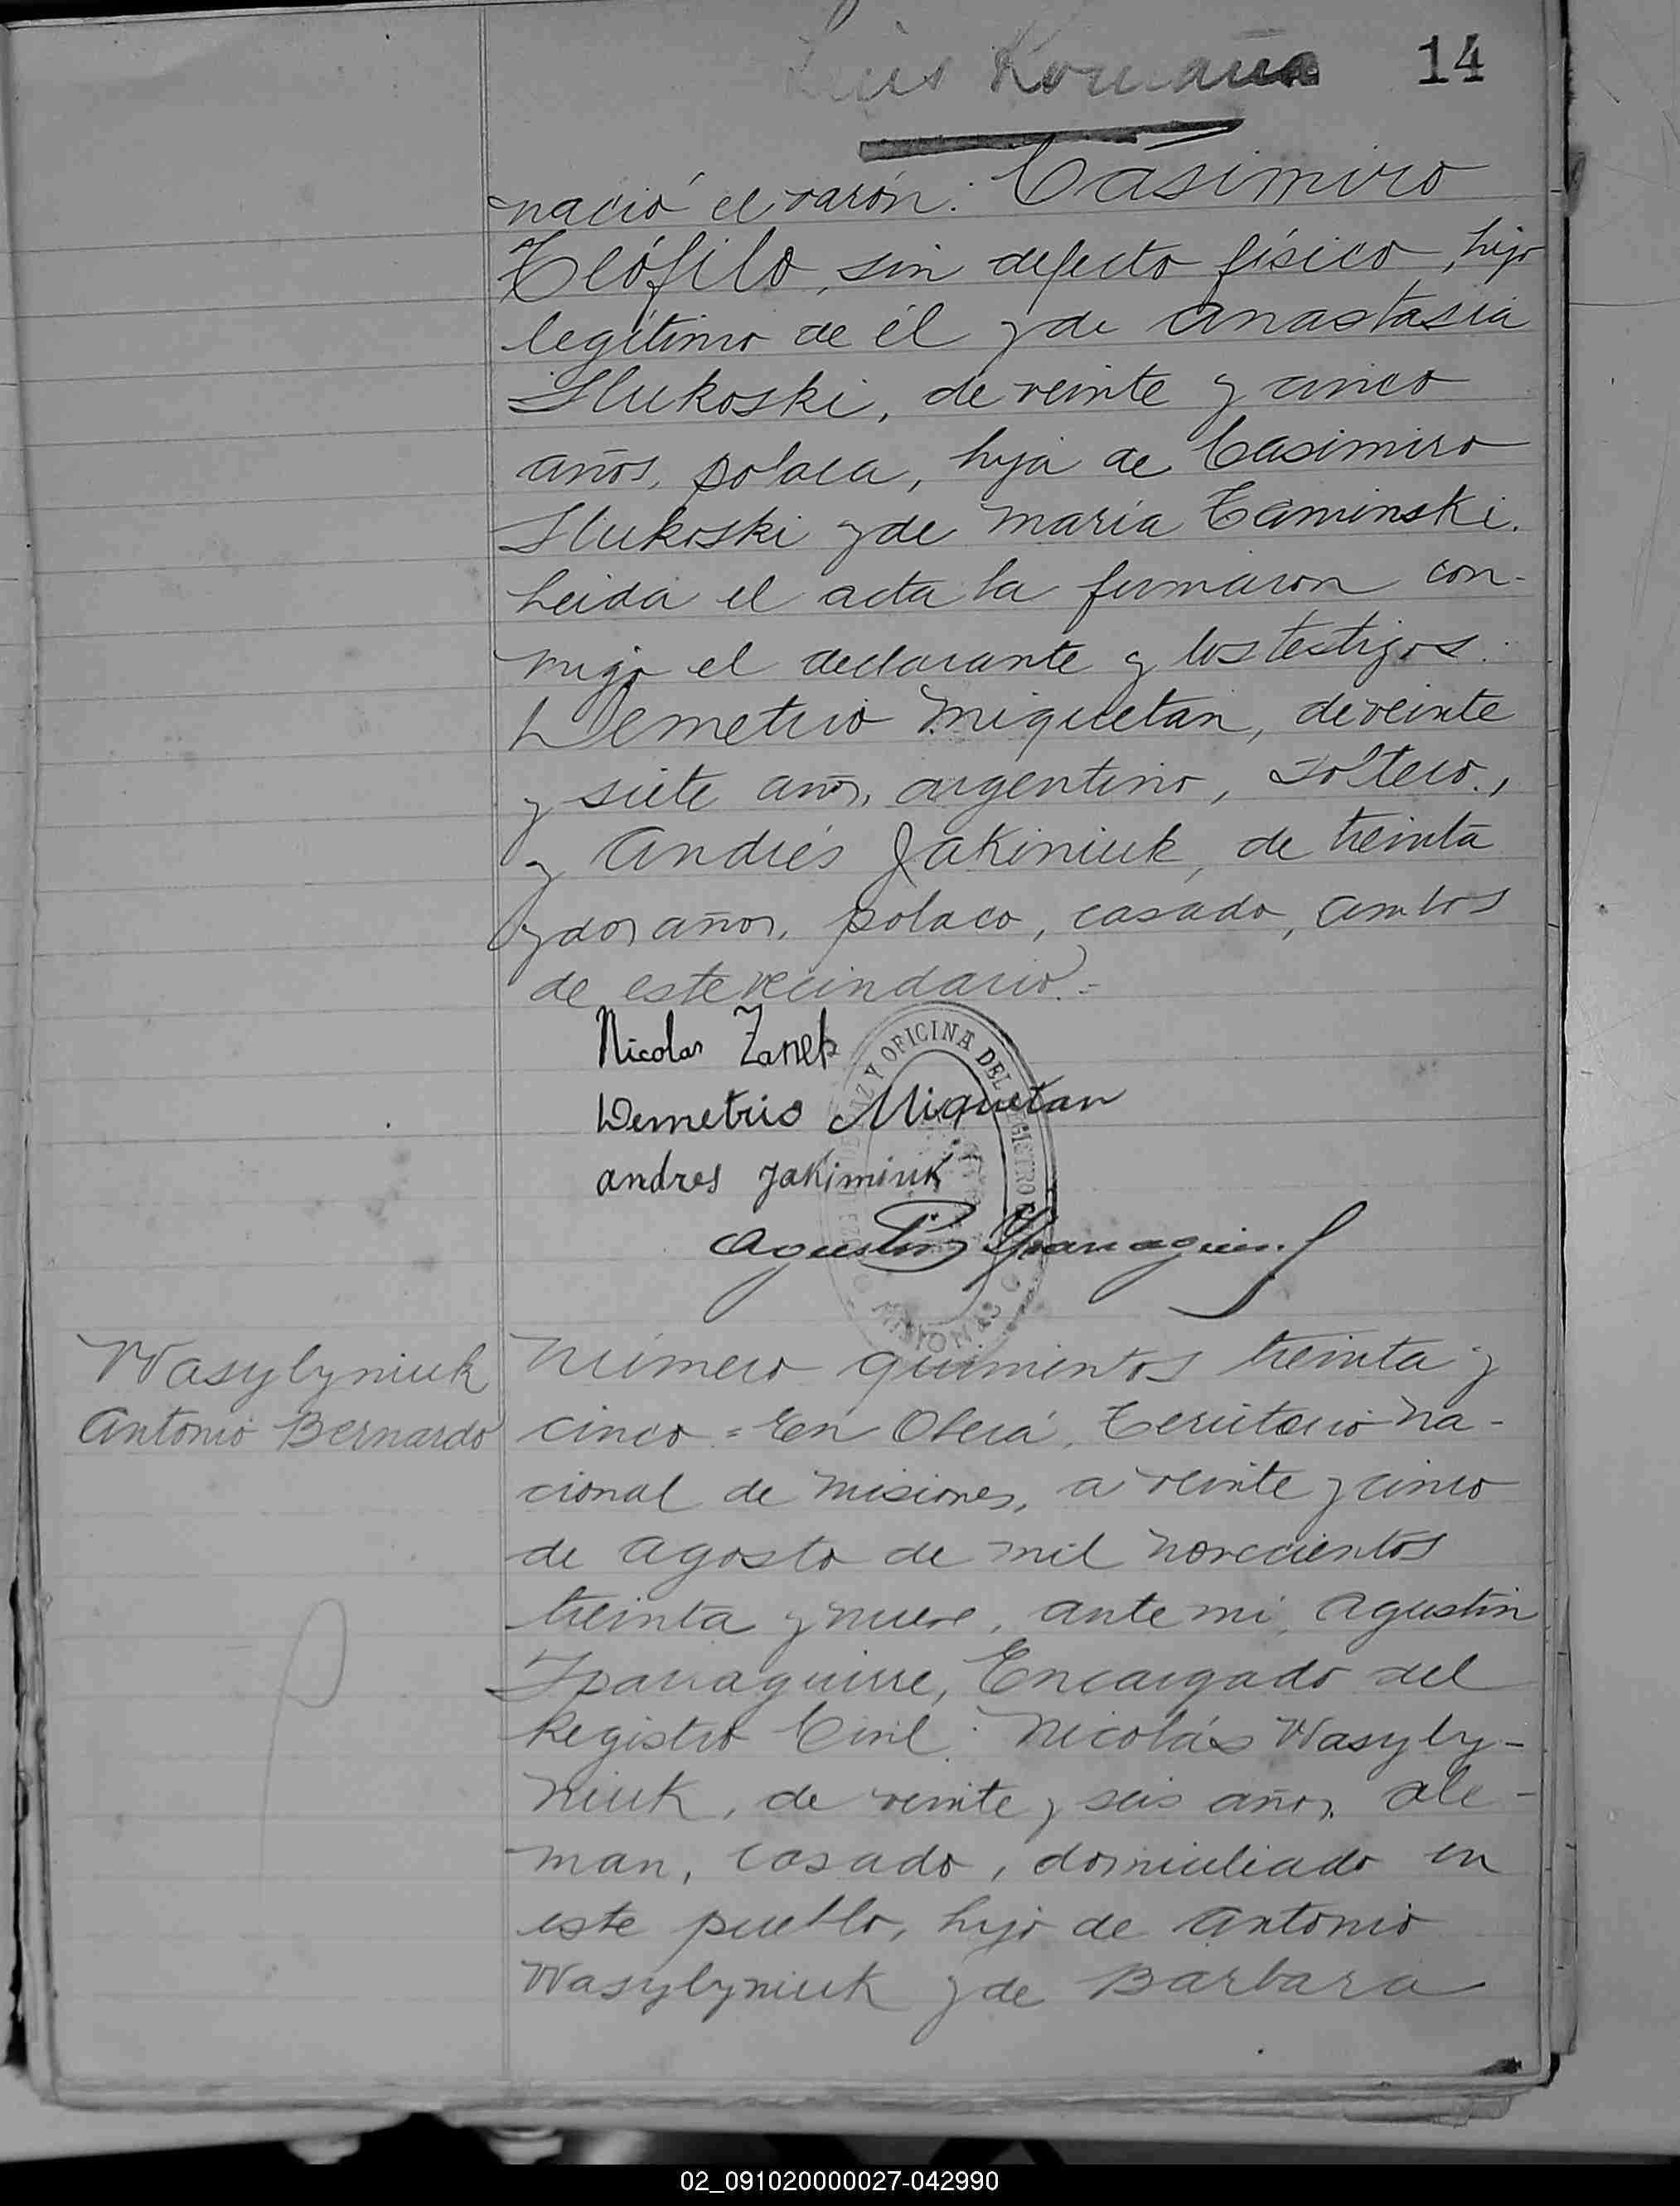 Luis Romaña
14
nació el varón: Casimiro
Teófilo, sin defecto físico, hijo
legítimo de él y de Anastasia
Slukoski, de veinte y cinco
años, polaca, hija de Casimiro
Slukoski y de María Caminski.
Leida el acta la firmaron con-
migo el declarante y los testigos:
Demetrio Miquetan, de veinte
y siete años, argentino, soltero,
y Andrés Jakiniuk, de treinta
y dos años, polaco, casado, ambos
de este vecindario.=
Nicolas Zanek
Demetrio Miquetan
andres Jakimiuk
Agustin Yparraguirre
OFICINA DEL REGISTRO
MISIONES
Wasylyniuk
Antonio Bernardo
Número quinientos treinta y
cinco = En Oberá, Territorio Na-
cional de Misiones, a veinte y cinco
de Agosto de mil novecientos
treinta y nueve, ante mi, Agustin
Yparraguirre, Encargado del
Registro Civil: Nicolás Wasyly-
niuk, de veinte y seis años, ale-
man, casado, domiciliado en
este pueblo, hijo de Antonio
Wasylyniuk y de Barbara
02_091020000027-042990